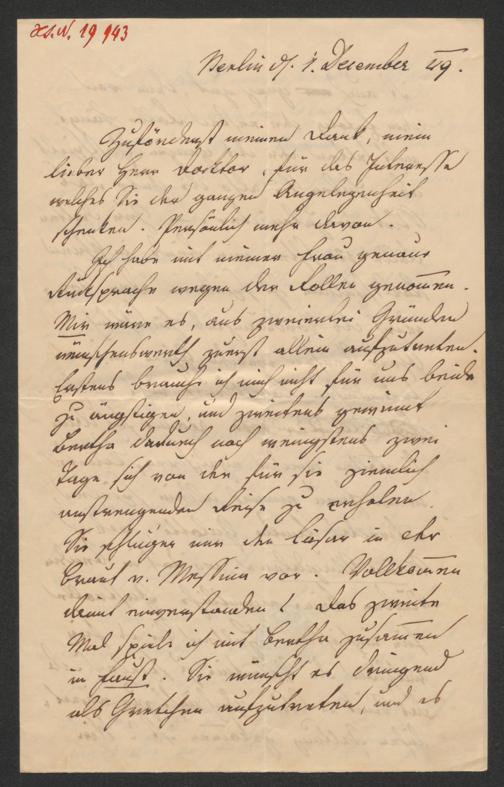 H.I.N. 19 943
Berlin d. 1. December 49.
Zuförderst meinen Dank, mein
lieber Herr Docktor, für das Interesse
welches Sie der ganzen Angelegenheit
schenken. Persönlich mehr davon.
Ich habe mit meiner Frau genaue
Rücksprache wegen der Rollen genommen.
Mir wäre es, aus zweierlei Gründen
wünschenswerth zuerst allein aufzutreten.
Erstens brauche ich mich nicht für uns beide
zu ängstigen, und zweitens gewinnt
Bertha dadurch noch wenigstens zwei
Tage sich von der für sie ziemlich
anstrengenden Reise zu erholen.
Sie schlugen nun den Cäsar in der
Braut v. Messina vor. Vollkommen
damit einverstanden! Das zweite
Mal spiele ich mit Bertha zusammen
in Faust. Sie wünscht es dringend
als Gretchen aufzutreten, und es